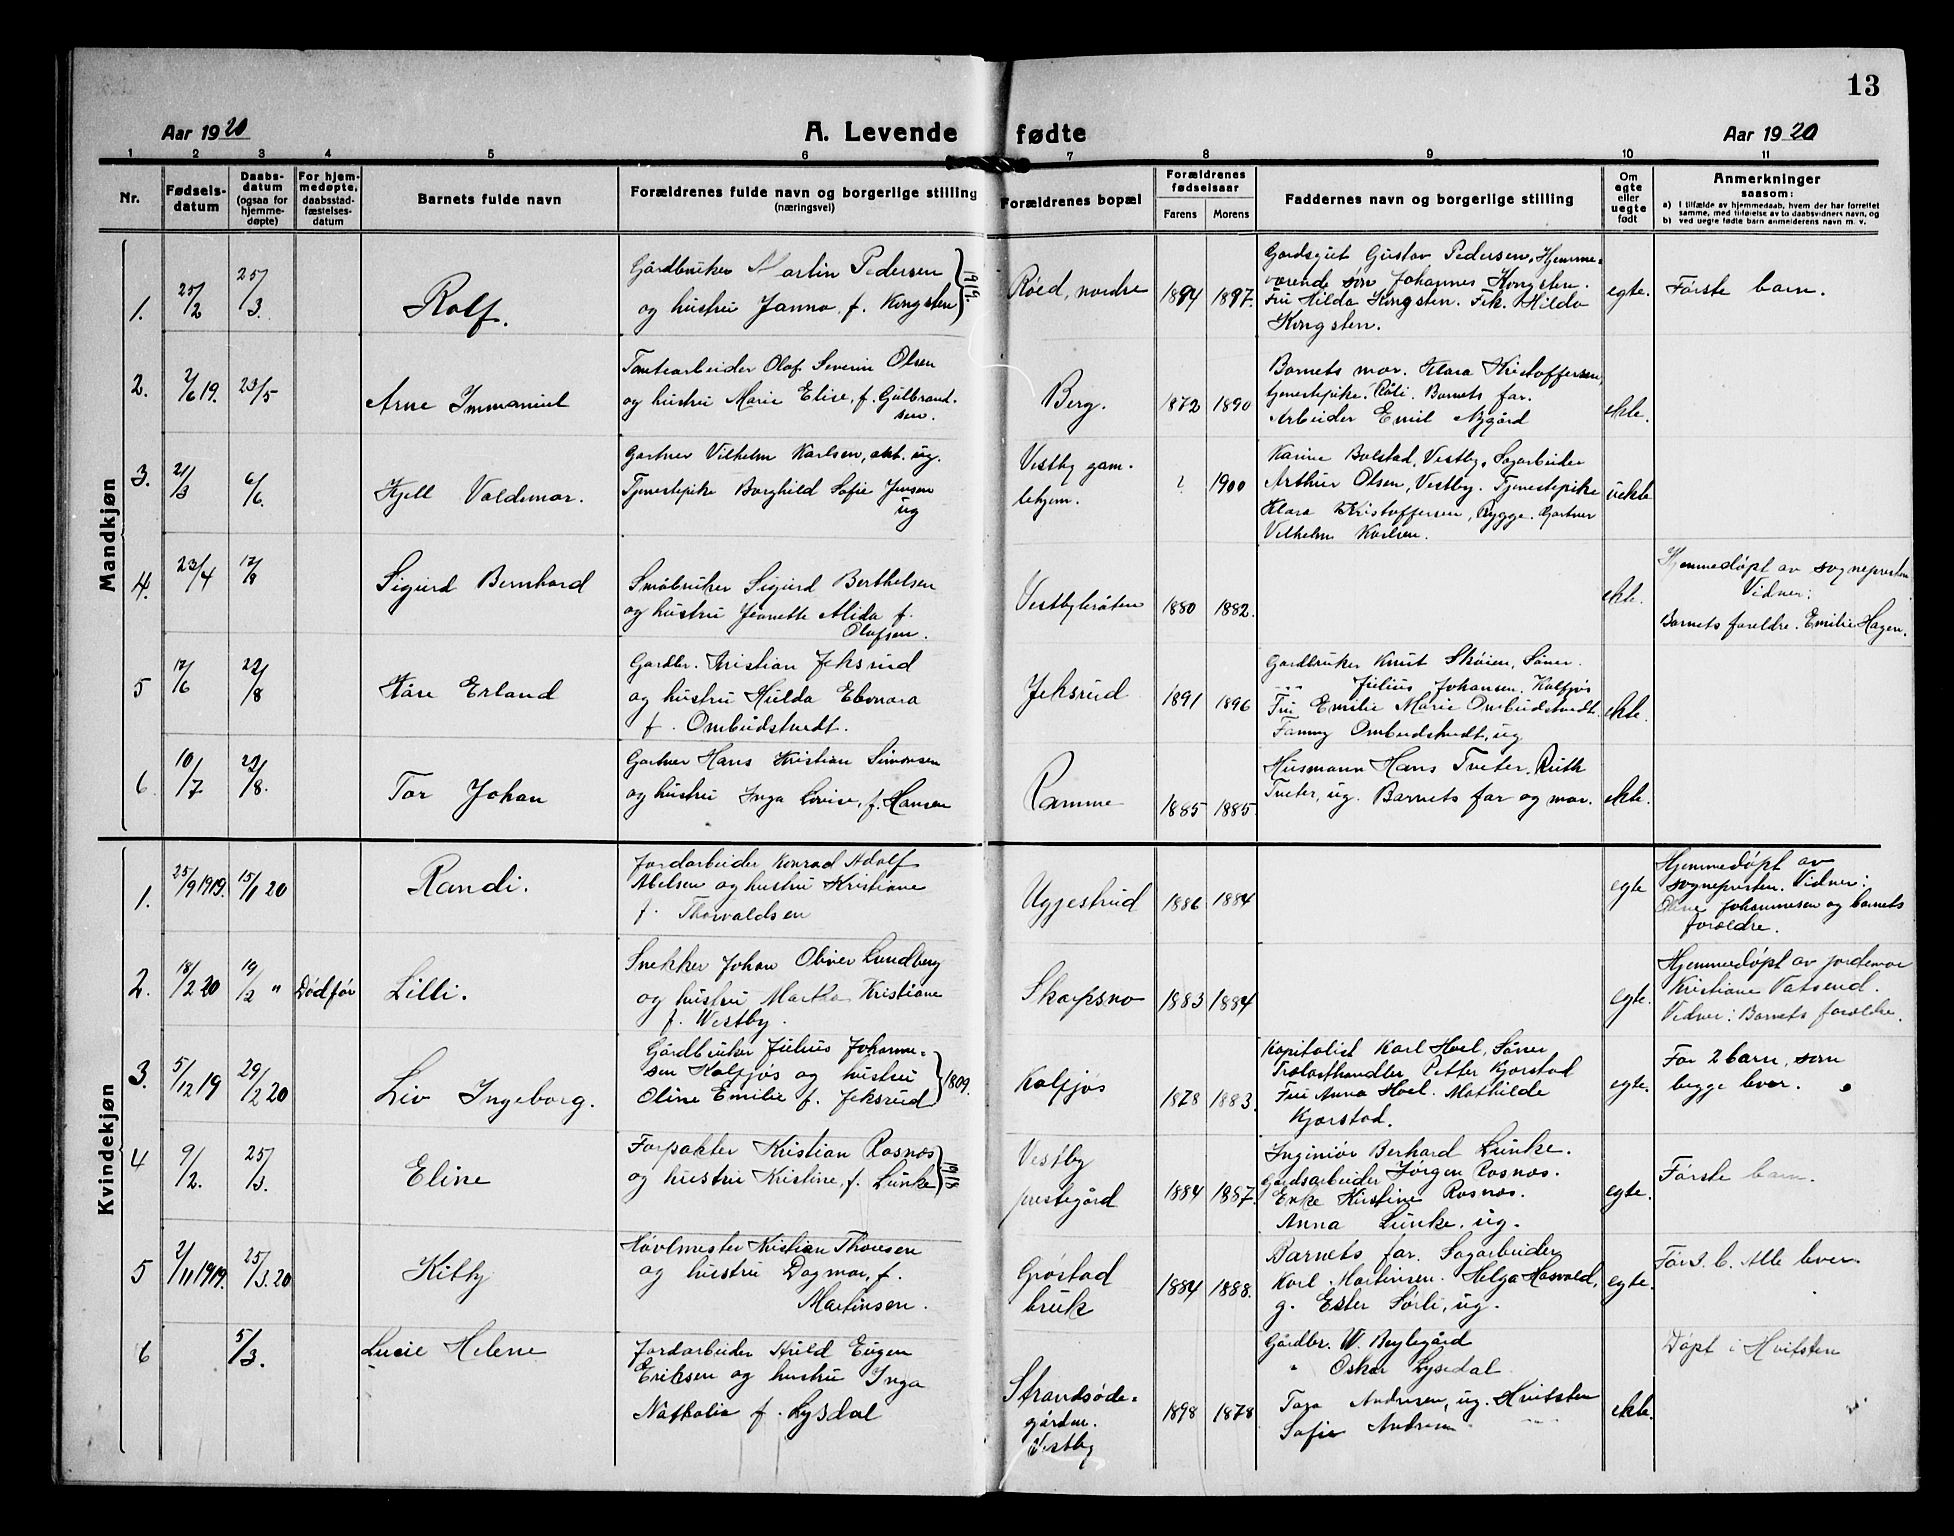 13
Aar 1920 A. Levende fødte Aar 1920
1 2 3 4 5 6 7 8 9 10 11
Nr.
Fødsels-
datum
Daabs-
datum
(ogsaa for
hjemme-
døpte)
For hjem-
medøpte,
daabsstad-
fæstelses-
datum
Barnets fulde navn
Forældrenes fulde navn og borgerlige stilling
(næringsvei)
Forældrenes bopæl
Forældrenes
fødselsaar
Farens Morens
Faddernes navn og borgerlige stilling
Om
egte
eller
uegte
født
Anmerkninger
saasom:
a) I tilfælde av hjemmedaab, hvem der har forrettet
samme, med tilføielse av to daabsvidners navn, og
b) ved uegte fødte barn anmelderens navn m. v.
Mandkjøn
1. 25/2 25/3. Rolf.
Gårdbruker Martin Pedersen
og hustru Janna, f. Kongsten } 1919
Røed, nordre 1894 1897.
Gardsgut Gustav Pedersen, Hjemme-
værende søn Johannes Kongsten.
Fru Hilda Kongsten. Frk. Hilda
Kongsten.
egte. Første barn.
2. 2/6 19. 23/5 Arne Immanuel
Tomtearbeider Olaf Severin Olsen
og hustru Marie Elise, f. Gulbrand-
sen.
Berg. 1872 1890
Barnets mor. Klara Kristoffersen,
tjenestepike. Barnets far.
Arbeider Emil Nygård
ekte.
3. 21/3 6/6. Kjell Valdemar.
Gartner Vilhelm Karlsen, ug.
Tjenestepike Borghild Sofie Jensen
ug
Vestby gam-
lehjem.
? 1900
Karine Bolstad, Vestby, Sagarbeider
Arthur Olsen, Vestby. Tjenestepike
Klara Kristoffersen, Rygge. Gartner
Vilhelm Karlsen.
uekte
4. 23/4 17/8 Sigurd Bernhard
Småbruker Sigurd Berthelsen
og hustru Jeanette Alida f.
Olafsen.
Vestbybråten 1880 1882.
ekte.
Hjemmedøpt av sogneprest
Vidner:
Barnets foreldre. Emilie Hagen.
5 17/6 22/8 Kåre Erland
Gardbr. Kristian Jeksrud
og hustru Hulda Ebonora
f. Ombudstvedt.
Jeksrud 1891 1896
Gardbruker Knut Skøien, Såner.
Julius Johansen. Kalfjøs
Fru Emilie Marie Ombudstvedt.
Fanny Ombudstvedt, ug
ekte.
6. 10/7 22/8. Tor Johan
Gartner Hans Kristian Simonsen
og hustru Inga Lovise, f. Hansen
Ramme 1885 1885.
Husmann Hans Tveter. Ruth
Tveter, ug. Barnets far og mor.
ekte.
Kvindekjøn
1. 25/9 1919. 15/1 20 Randi.
Jordarbeider Konrad Adolf
Abelsen og hustru Kristiane
f. Thorvaldsen
Uggestrud 1886 1884
egte
Hjemmedøpt av
sognepresten. Vidner:
Oline Johannesen og barnets
foreldre.
2. 18/2 20 19/2 " Død før Lilli.
Snekker Johan Oliver Lundberg
og hustru Martha Kristiane
f. Westby.
Skapsno 1883 1884
egte.
Hjemmedøpt av jordemor
Kristiane Vatsend.
Vidner: Barnets foreldre.
3. 5/12 19 29/2 20 Liv Ingeborg.
Gårdbruker Julius Johanne-
sen Kalfjøs og hustru
Oline Emilie f. Jeksrud } 1809.
Kalfjøs 1878 1883.
Kapitalist Karl Hoel, Såner
Trælasthandler Petter Kjorstad
Fru Anna Hoel. Mathilde
Kjorstad.
egte.
Før 2 barn, som
begge lever.
4 9/2. 25/3. Eline
Forpakter Kristian Rosnæs
og hustru Kristine, f. Lunke }
Vestby
prestegård
1884 1887.
Ingeniør Berhard Lunke.
Gårdsarbeider Jørgen Rosnæs.
Enke Kirstine Rosnæs.
Anna Lunke, ug.
egte.
Første barn.
5 2/11 1919. 25/3. 20 Kitty
Høvlmester Kristian Thoresen
og hustru Dagmar, f.
Martinsen.
Grøstad
bruk
1884 1888.
Barnets far. Sagarbeider
Karl Martinsen. Helga Hasvold,
g. Ester Sørli, ug.
egte.
Før 3. b. Alle lever.
6 5/3. Lucie Helene
Jordarbeider Arild Eugen
Eriksen og hustru Inga
Nathalia f. Lysdal
Strandsøde-
gården.
Vestby
1898 1878
Gårdbr. W. Bøylegård
" Oskar Lysedal
Andresen, ug. Hvitsten
Sofie Andresen
ekte.
Døpt i Hvitsten